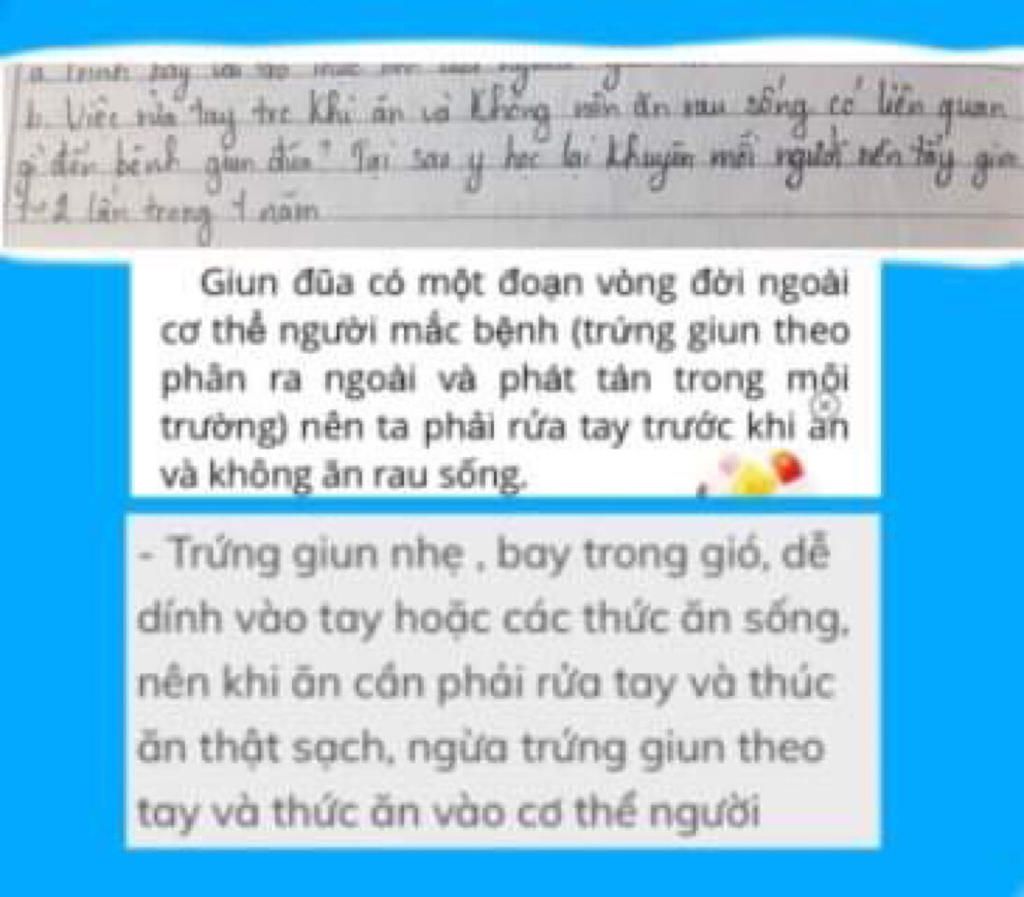 a. Trình bày
b. Việc rửa tay trc khi ăn và không nên ăn rau sống có liên quan
gì đến bệnh giun đũa? Tại sao y học lại khuyên mỗi người nên tẩy giun
1-2 lần trong 1 năm
Giun đũa có một đoạn vòng đời ngoài
cơ thể người mắc bệnh (trứng giun theo
phân ra ngoài và phát tán trong môi
trường) nên ta phải rửa tay trước khi ăn
và không ăn rau sống.
- Trứng giun nhẹ , bay trong gió, dễ
dính vào tay hoặc các thức ăn sống,
nên khi ăn cần phải rửa tay và thúc
ăn thật sạch, ngừa trứng giun theo
tay và thức ăn vào cơ thể người